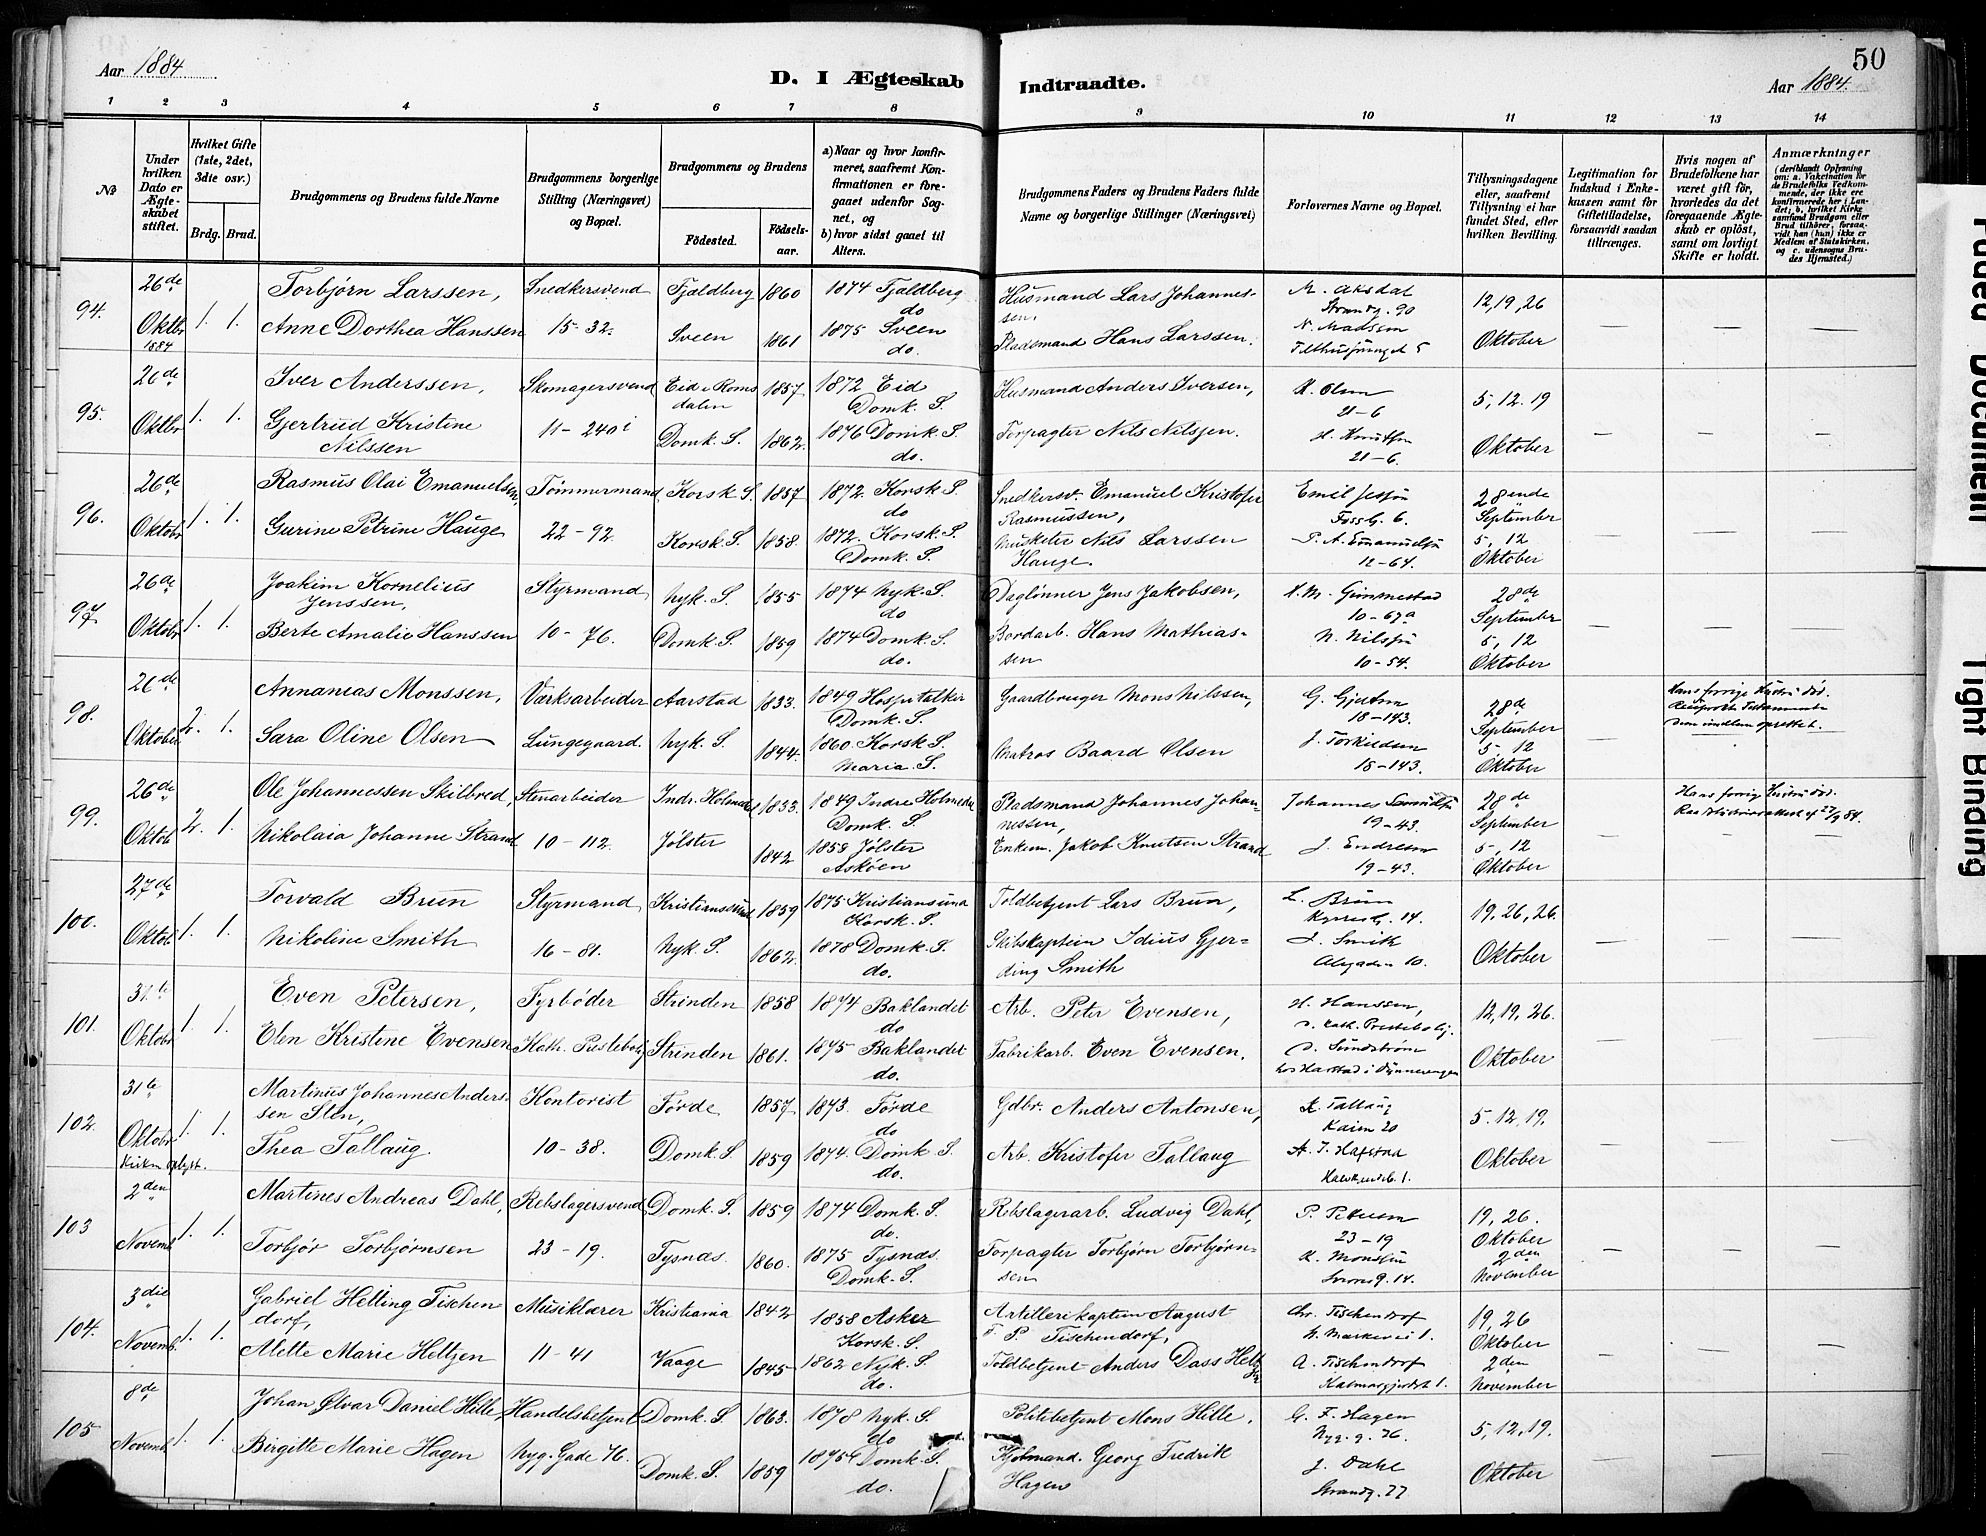 Aar 1884
D. I Ægteskab Indtraadte.
Aar 1884.
50
1 2 3 4 5 6 7 8 9 10 11 12 13 14
№
Under hvilken Dato er Ægteskabet stiftet.
Hvilket Gifte (1ste, 2det, 3die osv.)
Brdg. Brud.
Brudgommens og Brudens fulde Navne
Brudgommens borgerlige Stilling (Næringsvei) og Bopæl.
Brudgommens og Brudens
Fødested. Fødsels-aar.
a) Naar og hvor konfirmeret, saafremt Konfirmationen er foregaaet udenfor Sognet, og
b) hvor sidst gaaet til Alters.
Brudgommens Faders og Brudens Faders fulde Navne og borgerlige Stillinger (Næringsvei)
Forlovernes Navne og Bopæl.
Tillysningsdagene eller, saafremt Tillysning ei har fundet Sted, efter hvilken Bevilling.
Legitimation for Indskud i Enkekassen samt for Giftetilladelse, forsaavidt saadan tiltrænges.
Hvis nogen af Brudefolkene har været gift før, hvorledes da det foregaaende Ægteskab er opløst, samt om lovligt Skifte er holdt.
Anmærkninger (deriblandt Oplysning om: a. Vakcination for de Brudefolks Vedkommende, der ikke ere konfirmerede her i Landet; b, hvilket Kirkesamfund Brudgom eller Brud tilhører, forsaavidt han (hun) ikke er Medlem af Statskirken, og c. udensogns Brudes Hjemsted.)
94. 26de Oktbr 1884 1. 1.
Torbjørn Larssen, Snedkersvend Fjeldberg 1860 1874 Fjeldberg do
Husmand Lars Johannessen. M. Aksdal Strandg. 90 12, 19, 26
Anne Dorthea Hanssen 15-32. Sveen 1861 1875 Sveen do.
Pladsmand Hans Larssen. N. Madsen Oktober
95. 26de Oktbr 1. 1.
Iver Anderssen, Skomagersvend Eid i Romsdalen 1857 1872 Eid Domk. S.
Husmand Anders Iversen, K. Olsen 21-6 5, 12. 19
Gjertrud Kristine Nilssen 11-240 i Domk. S. 1862. 1876 Domk. S. do.
Forpagter Nils Nilssen. H. Knutsen 21-6. Oktober
96. 26de Oktobr 1. 1.
Rasmus Olai Emanuelsen, Tømmermand Korsk S. 1857 1872. Korsk S. do
Snedkersv. Emanuel Kristofer Rasmussen, Emil Jessen Fossg. 6. 28ende September
Gurine Petrine Hauge 22-92. Korsk. S. 1858. 1872. Korsk. S. Domk. S.
Musketer Nils Larssen Hauge. P. A. Emanuelsen 12-64. 5, 12 Oktober
97. 26de Oktobr 1. 1.
Joakim Kornelius Jenssen, Styrmand Nyk. S. 1855 1874 Nyk. S. do
Daglønner Jens Jakobsen, Gimmestad 10-67a 28de September
Berte Amalie Hanssen 10-76. Domk. S. 1859 1874 Domk. S. do.
Bordarb. Hans Mathiassen N. Nilssen 10-54. 5, 12 Oktober
98. 26de Oktober 2. 1.
Annanias Monssen, Værksarbeider Aarstad 1833. 1849 Hospitalkir Domk. S.
Gaardbruger Mons Nilssen, 18-143. 28de September
Hans forrige Hustru død.
Sara Oline Olsen Lungegaard. Nyk. S. 1844. 1860. Korsk S. Maria. S.
Matros Baard Olsen J. Torkildsen 18-143. 5, 12 Oktober
99. 26de Oktob 2. 1.
Ole Johannessen Skilbred, Stenarbeider Indr. Holmedal 1833. 1849 Indre Holmedal Domk. S.
Baadsmand Johannes Johannessen, Johannes 19-43. 28de September
Hans forrige Hustru død.
Nikolaia Johanne Strand 10-112. Jølster 1842 1858 Jølster Askøen
Enkem. Jakob Knutsen Strand J. Endresen 19-43. 5, 12 Oktober
100. 27de Oktob 1. 1.
Torvald Brun Styrmand Kristianssund 1859 1875 Kristiansund Korsk. S.
Toldbetjent Lars Brun, L. Brun 14. 19, 26, 26.
Nikoline Smith 16-81. Nyk. S. 1862. 1878 Domk. S. do.
Skibskaptein Idius Gjerding Smith J. Smith 10. Oktober
101. 31te Oktobr 1. 1.
Even Petersen, Fyrbøder Strinden 1858 1874 Baklandet do
Arb. Peter Evensen, H. Hanssen, 12, 19, 26.
Elen Kristine Evensen Kath. Prestebolig Strinden 1861. 1875 Baklandet do.
Fabrikarb. Even Evensen. Sundstrøm Oktober
102. 31te Oktobr 1. 1.
Martinus Johannes Anderssen Sten, Kontorist Førde 1857 1873. Førde do
Gdbr. Anders Antonsen, K. Tallaug Kaien 20 5. 12, 19.
Thea Tallaug. 10-38. Domk. S. 1859 1874. Domk S. do.
Arb. Kristofer Tallaug Hafstad Oktober
103 2den Novemb. 1. 1.
Martines Andreas Dahl, Rebslagersvend Domk. S. 1859 1874 Domk. S. do.
Rebslagerarb. Ludvig Dahl, P. Petersen 23-19 19, 26. Oktober
Torbjør Torbjørnsen 23-19. Tysnæs. 1860. 1875 Tysnæs. Domk. S.
Forpagter Torbjørn Torbjørnsen K. Monssen 2den November
104. 3die Novemb. 1. 1.
Gabriel Helting Tischendorf, Musiklærer Kristiania 1842 1858 Asker Korsk. S.
Artillerikaptein August F. P. Tischendorf, Chr. Tischendorf 19, 26 Oktober
Alette Marie Heltzen 11-41 Vaage 1845 1862 Nyk. S. do.
Toldbetjent Anders Dass Heltzen A. Tischendorf 2den November
105 8de Novemb. 1. 1.
Johan Ølvar Daniel Hille, Handelsbetjent Domk. S. 1863. 1878 Nyk. S. do
Politibetjent Mons Hille. G. F. Hagen Nyg. g. 76. 5, 12, 19.
Birgitte Marie Hagen Nyg. Gade 76. Domk. S. 1859 1875 Domk. S. do.
Kjøbmand. Georg Fredrik Hagen J. Dahl Strandg. 77 Oktober
Faded Document
Tight Binding